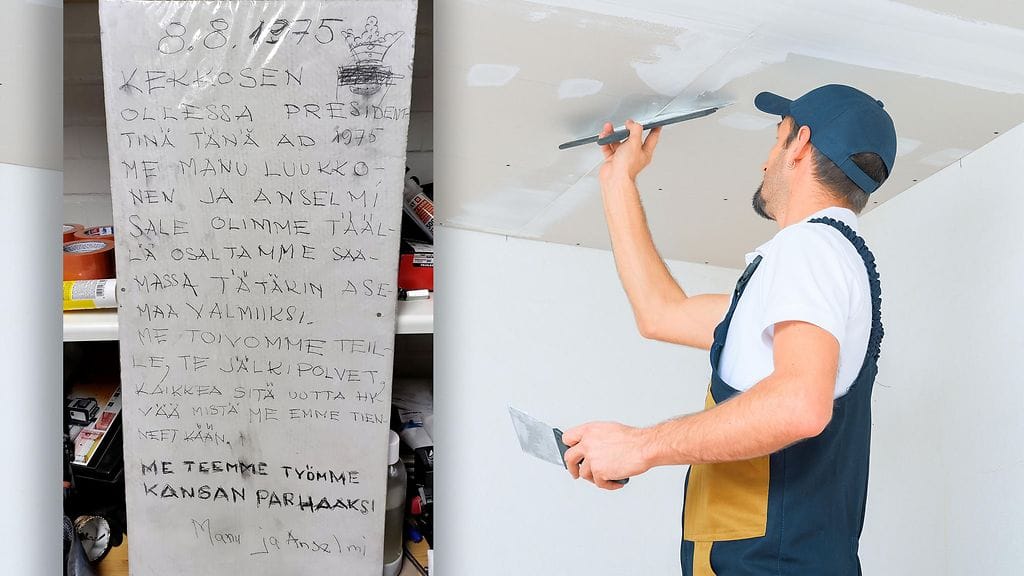 8.8.1975
KEKKOSEN
OLLESSA PRESIDENT
TINÄ TÄNÄ AD 1975
ME MANU LUUKKO-
NEN JA ANSELMI
SALE OLIMME TÄÄL-
LÄ OSALTAMME SAA-
MASSA TÄTÄKIN ASE
MAA VALMIIKSI.
ME TOIVOMME TEIL-
LE, TE JÄLKIPOLVET,
KAIKKEA SITÄ UUTTA HY-
VÄÄ MISTÄ ME EMME TIEN
NEET KÄÄN.
ME TEEMME TYÖMME
KANSAN PARHAAKSI
Manu ja Anselmi